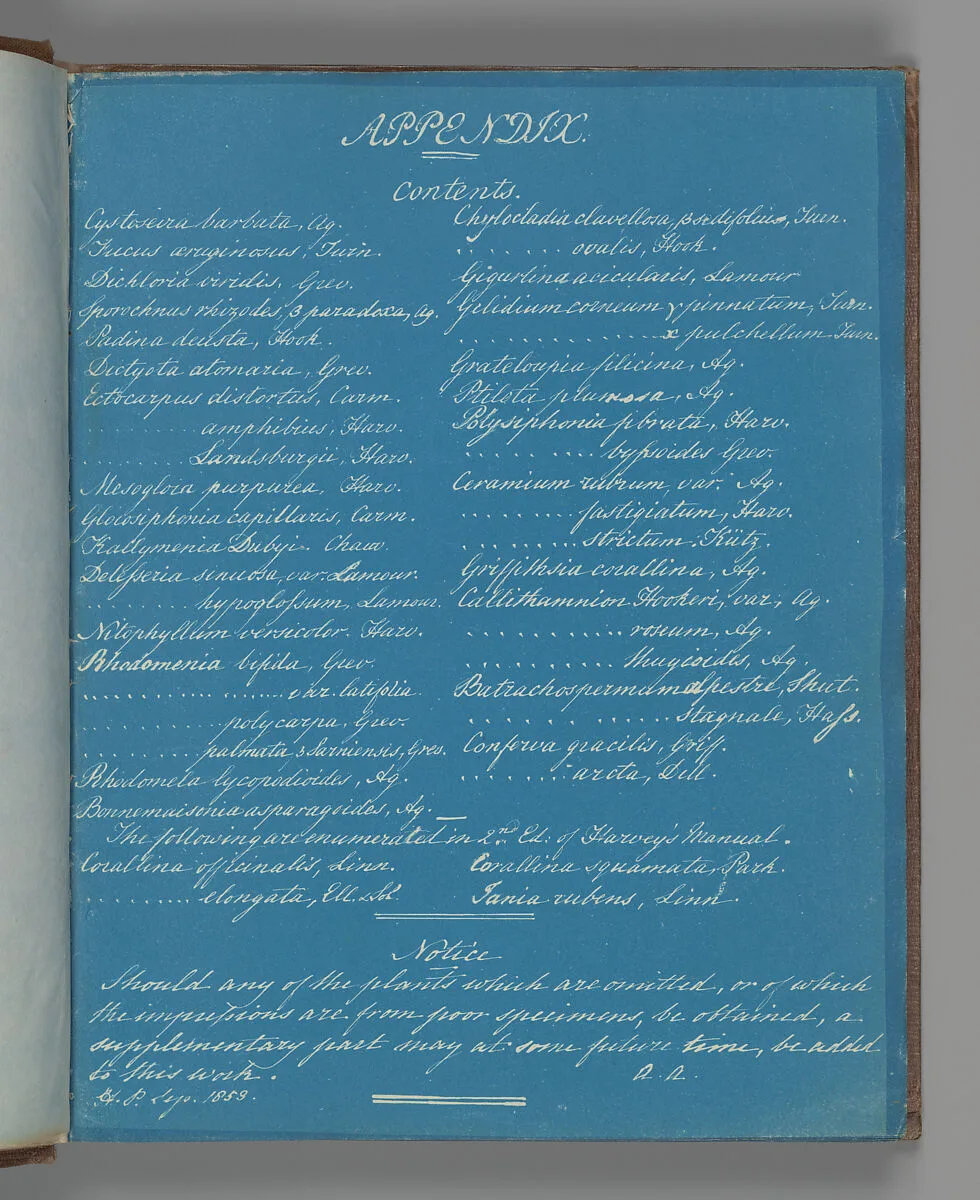 APPENDIX.
Contents.
Cystoseira barbata, Ag.
Fucus æruginosus, Turn.
Dichloria viridis, Grev.
Sporochnus rhizodes, β paradoxa, Ag.
Padina deusta, Hook.
Dictyota atomaria, Grev.
Ectocarpus distortus, Carm.
......... amphibius, Harv.
......... Landsburgii, Harv.
Mesogloia purpurea, Harv.
Gloiosiphonia capillaris, Carm.
Kallymenia Dubyi. Chauv.
Delesseria sinuosa, var. Lamour.
......... hypoglossum, Lamour.
Nitophyllum versicolor. Harv.
Rhodomenia bifida, Grev.
................ var. latifolia.
............. polycarpa, Grev.
........... palmata β Sarniensis, Grev.
Rhodomela lycopodioides, Ag.
Bonnemaisonia asparagoides, Ag.
Chylocladia clavellosa, β sedifolius, Turn.
....... ovalis, Hook.
Gigartina acicularis, Lamour
Gelidium corneum γ pinnatum, Turn.
............... x pulchellum Turn.
Grateloupia filicina, Ag.
Ptilota plumosa, Ag.
Polysiphonia fibrata, Harv.
......... byssoides Grev.
Ceramium rubrum, var. Ag.
........ fastigiatum, Harv.
........ strictum. Kütz.
Griffithsia corallina, Ag.
Callithamnion Hookeri, var, Ag.
........... roseum, Ag.
.......... thuyoidis, Ag.
Batrachospermum alpestre, Shut.
............ stagnale, Hass.
Conferva gracilis, Griff.
....... arcta, Dill.
The following are enumerated in 2nd Ed: of Harvey's Manual.
Corallina officinalis, Linn.
......... elongata, Ell. & Sol.
Corallina squamata, Park.
Jania rubens, Linn.
Notice
Should any of the plants which are omitted, or of which
the impressions are from poor specimens, be obtained, a
supplementary part may at some future time, be added
to this work. A. A.
H. P. Sep. 1853.